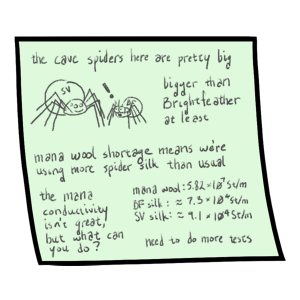 the cave spiders here are pretty big
SV
!
BF
bigger than
Brightfeather
at least
mana wool shortage means we're
using more spider silk than usual
the mana
conductivity
isn't great,
but what can
you do?
mana wool: 5.82×10⁷ St/m
BF silk: ≈ 7.3×10⁴ St/m
SV silk: ≈ 9.1×10⁴ St/m
need to do more tests